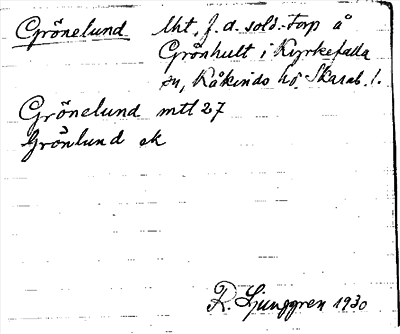 Grönelund lht, f. d. sold.-torp å
Grönhult i Kyrkefalla
sn, Kåkinds hd. Skarab. l.
Grönelund mtl 27
Grönlund ek
R. Ljunggren 1930